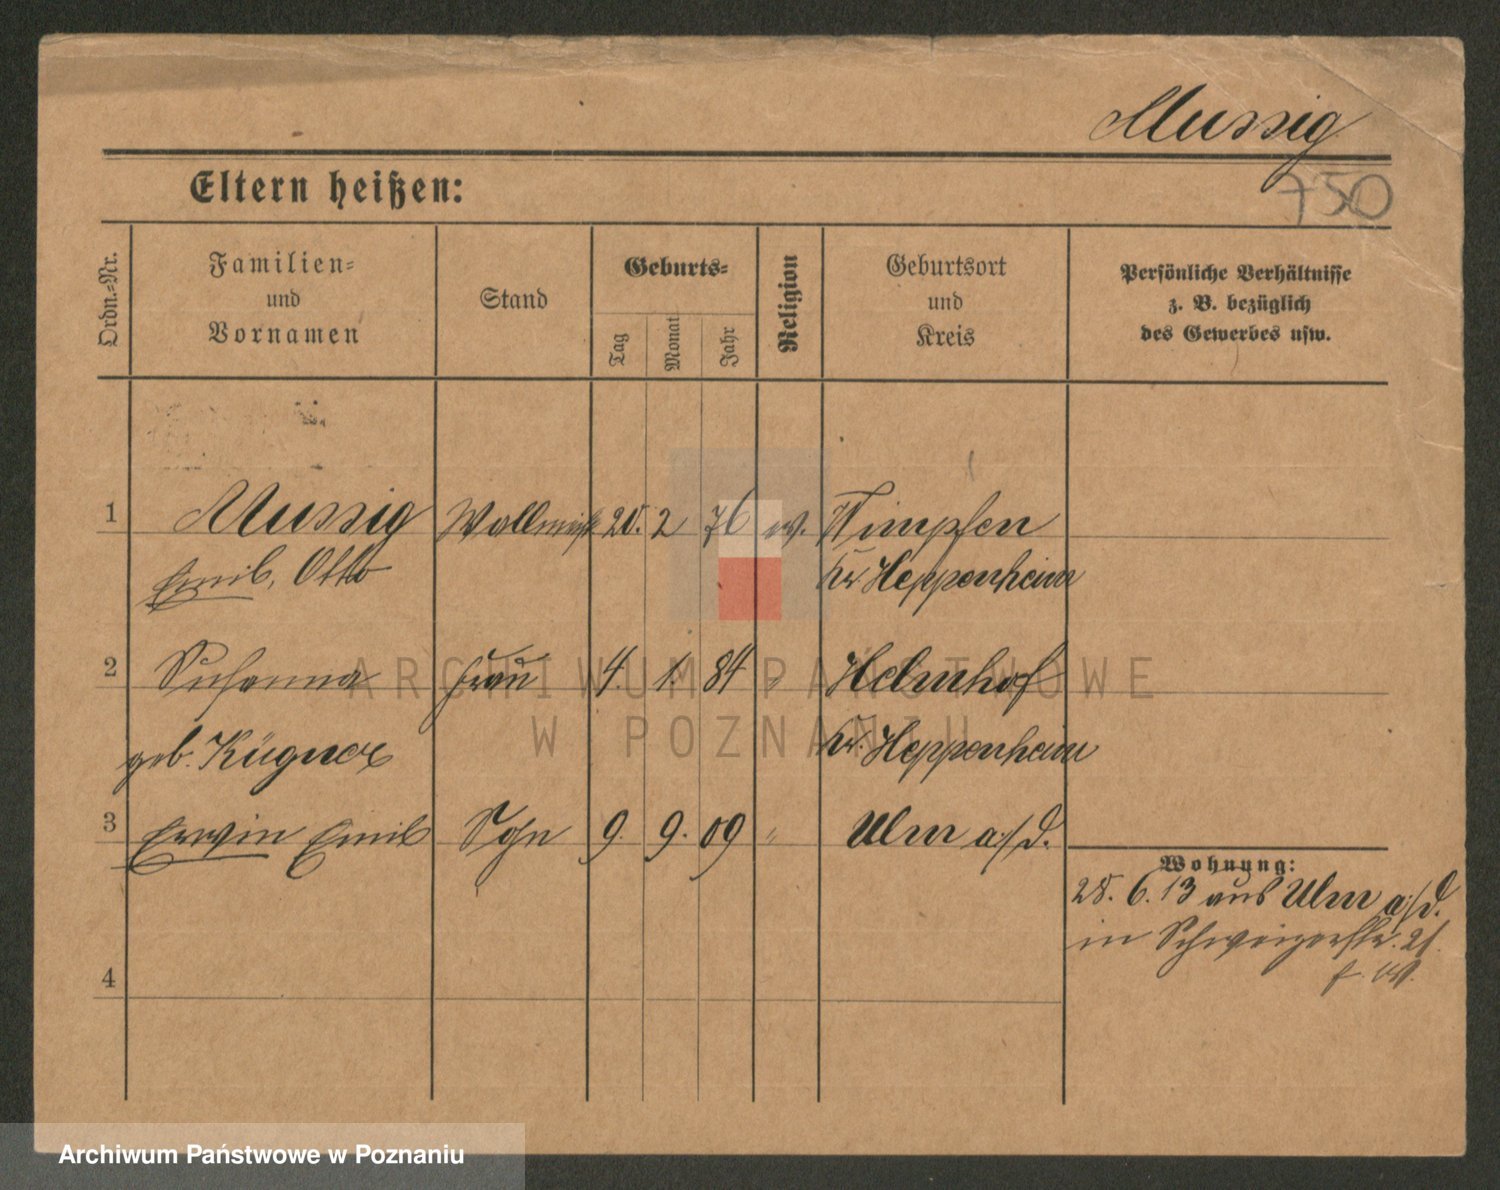 Mussig
750
Eltern heißen:
Ordn.-Nr.
Familien-
und
Vornamen
Stand
Geburts-
Tag
Monat
Jahr
Religion
Geburtsort
und
Kreis
Persönliche Verhältnisse
z. B. bezüglich
des Gewerbes usw.
1 Mussig 2 76 ev. Wimpfen
Emil, Otto Kr. Heppenheim
2 Susanna Frau 4. 1. 84 " Helmhof
geb. Kr. Heppenheim
3 Erwin Emil Sohn 9. 9. 09 " Ulm a/d.
Wohnung:
28. 6. 13 aus Ulm a/d.
in 21.
4
ARCHIWUM PAŃSTWOWE
W POZNANIU
Archiwum Państwowe w Poznaniu